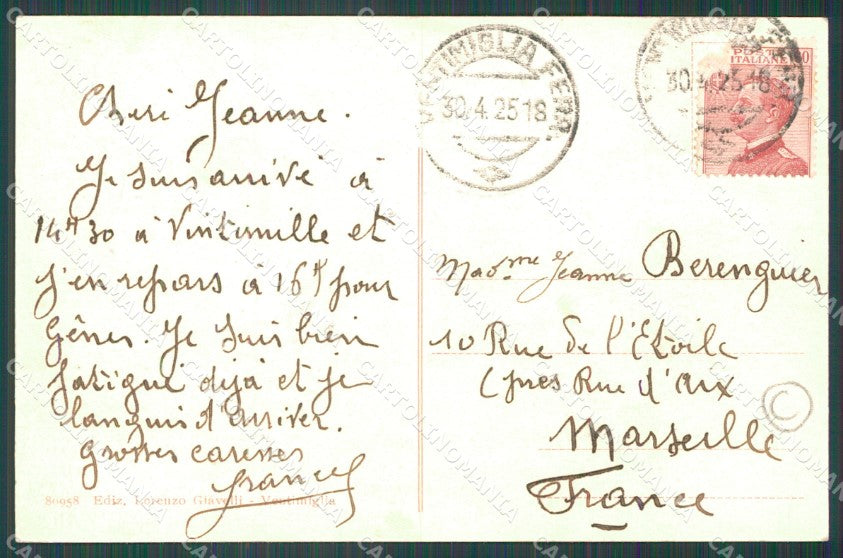 Cheri Jeanne.
Je suis arrivé à
14H30 à Vintimille et
j'en repars à 16H pour
Gênes. Je suis bien
fatigué dejà et je
languis d'arriver.
Grosses caresses
Francis
80958 Ediz. Lorenzo Giavelli - Ventimiglia
VENTIMIGLIA FERR.
30.4.25 18
30.4.25 18
POSTE
ITALIANE
Madme Jeanne Berenguier
10 Rue de l'Etoile
(près Rue d'Aix
Marseille
France
©
CARTOLINOMANIA